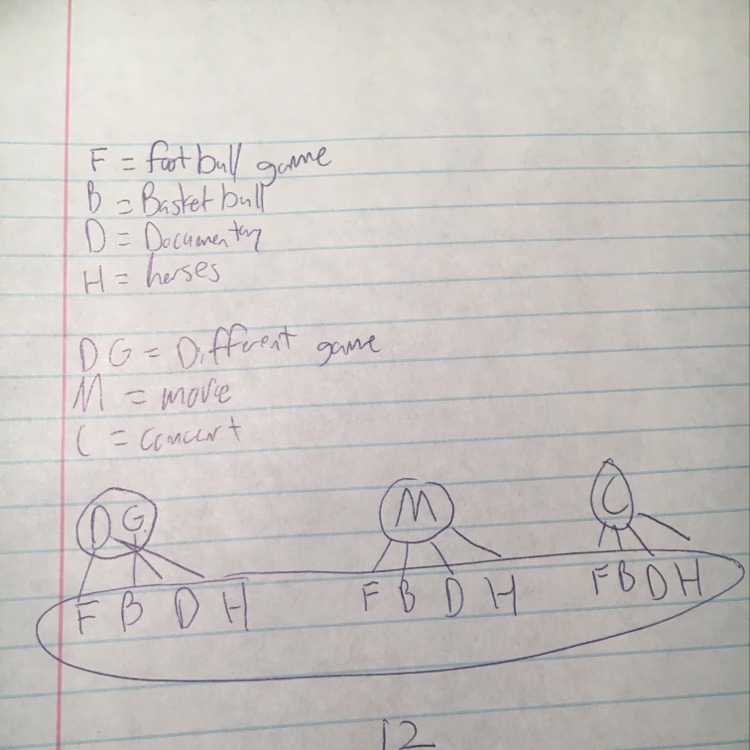 F = football game
B = Basketball
D = Documentary
H = horses
DG = Different game
M = movie
C = concert
DG M C
F B D H F B D H F B D H
12